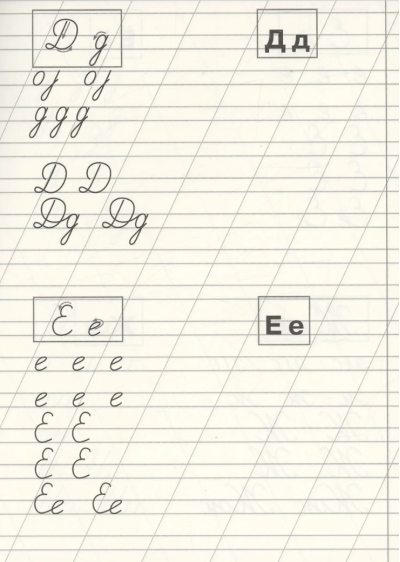 Д д Д д
д д
д д д
Д Д
Дд Дд
Е е Е е
е е е
е е е
Е Е
Е Е
Ее Ее